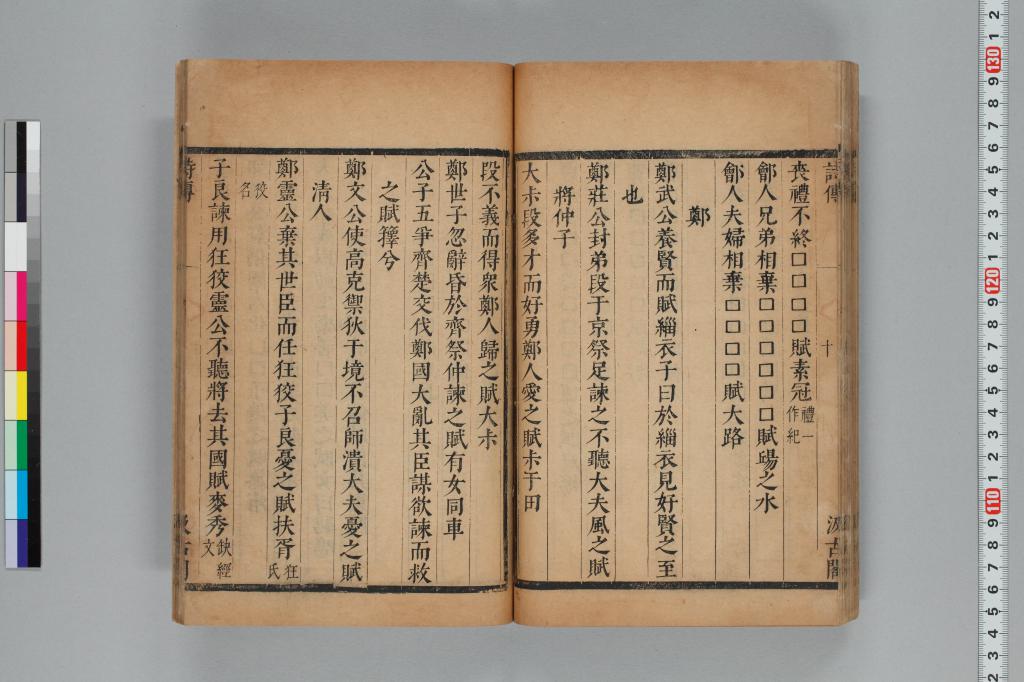 詩傳 十 汲古閣
喪禮不終口口口口賦素冠禮一作紀
鄶人兄弟相棄口口口口口口賦昜之水
鄶人夫婦相棄口口口口賦大路
鄭
鄭武公養賢而賦緇衣子曰於緇衣見好賢之至
也
鄭莊公封弟段于京祭足諫之不聽大夫風之賦
將仲子
大尗段多才而好勇鄭人愛之賦尗于田
段不義而得衆鄭人歸之賦大尗
鄭世子忽辭昏於齊祭仲諫之賦有女同車
公子五爭齊楚交伐鄭國大亂其臣謀欲諫而救
之賦籜兮
鄭文公使高克禦狄于境不召師潰大夫憂之賦
清人
鄭靈公棄其世臣而任狂狡子良憂之賦扶胥狂氏
狡名
子良諫用狂狡靈公不聽將去其國賦麥秀缺經文
詩傳 汲古閣